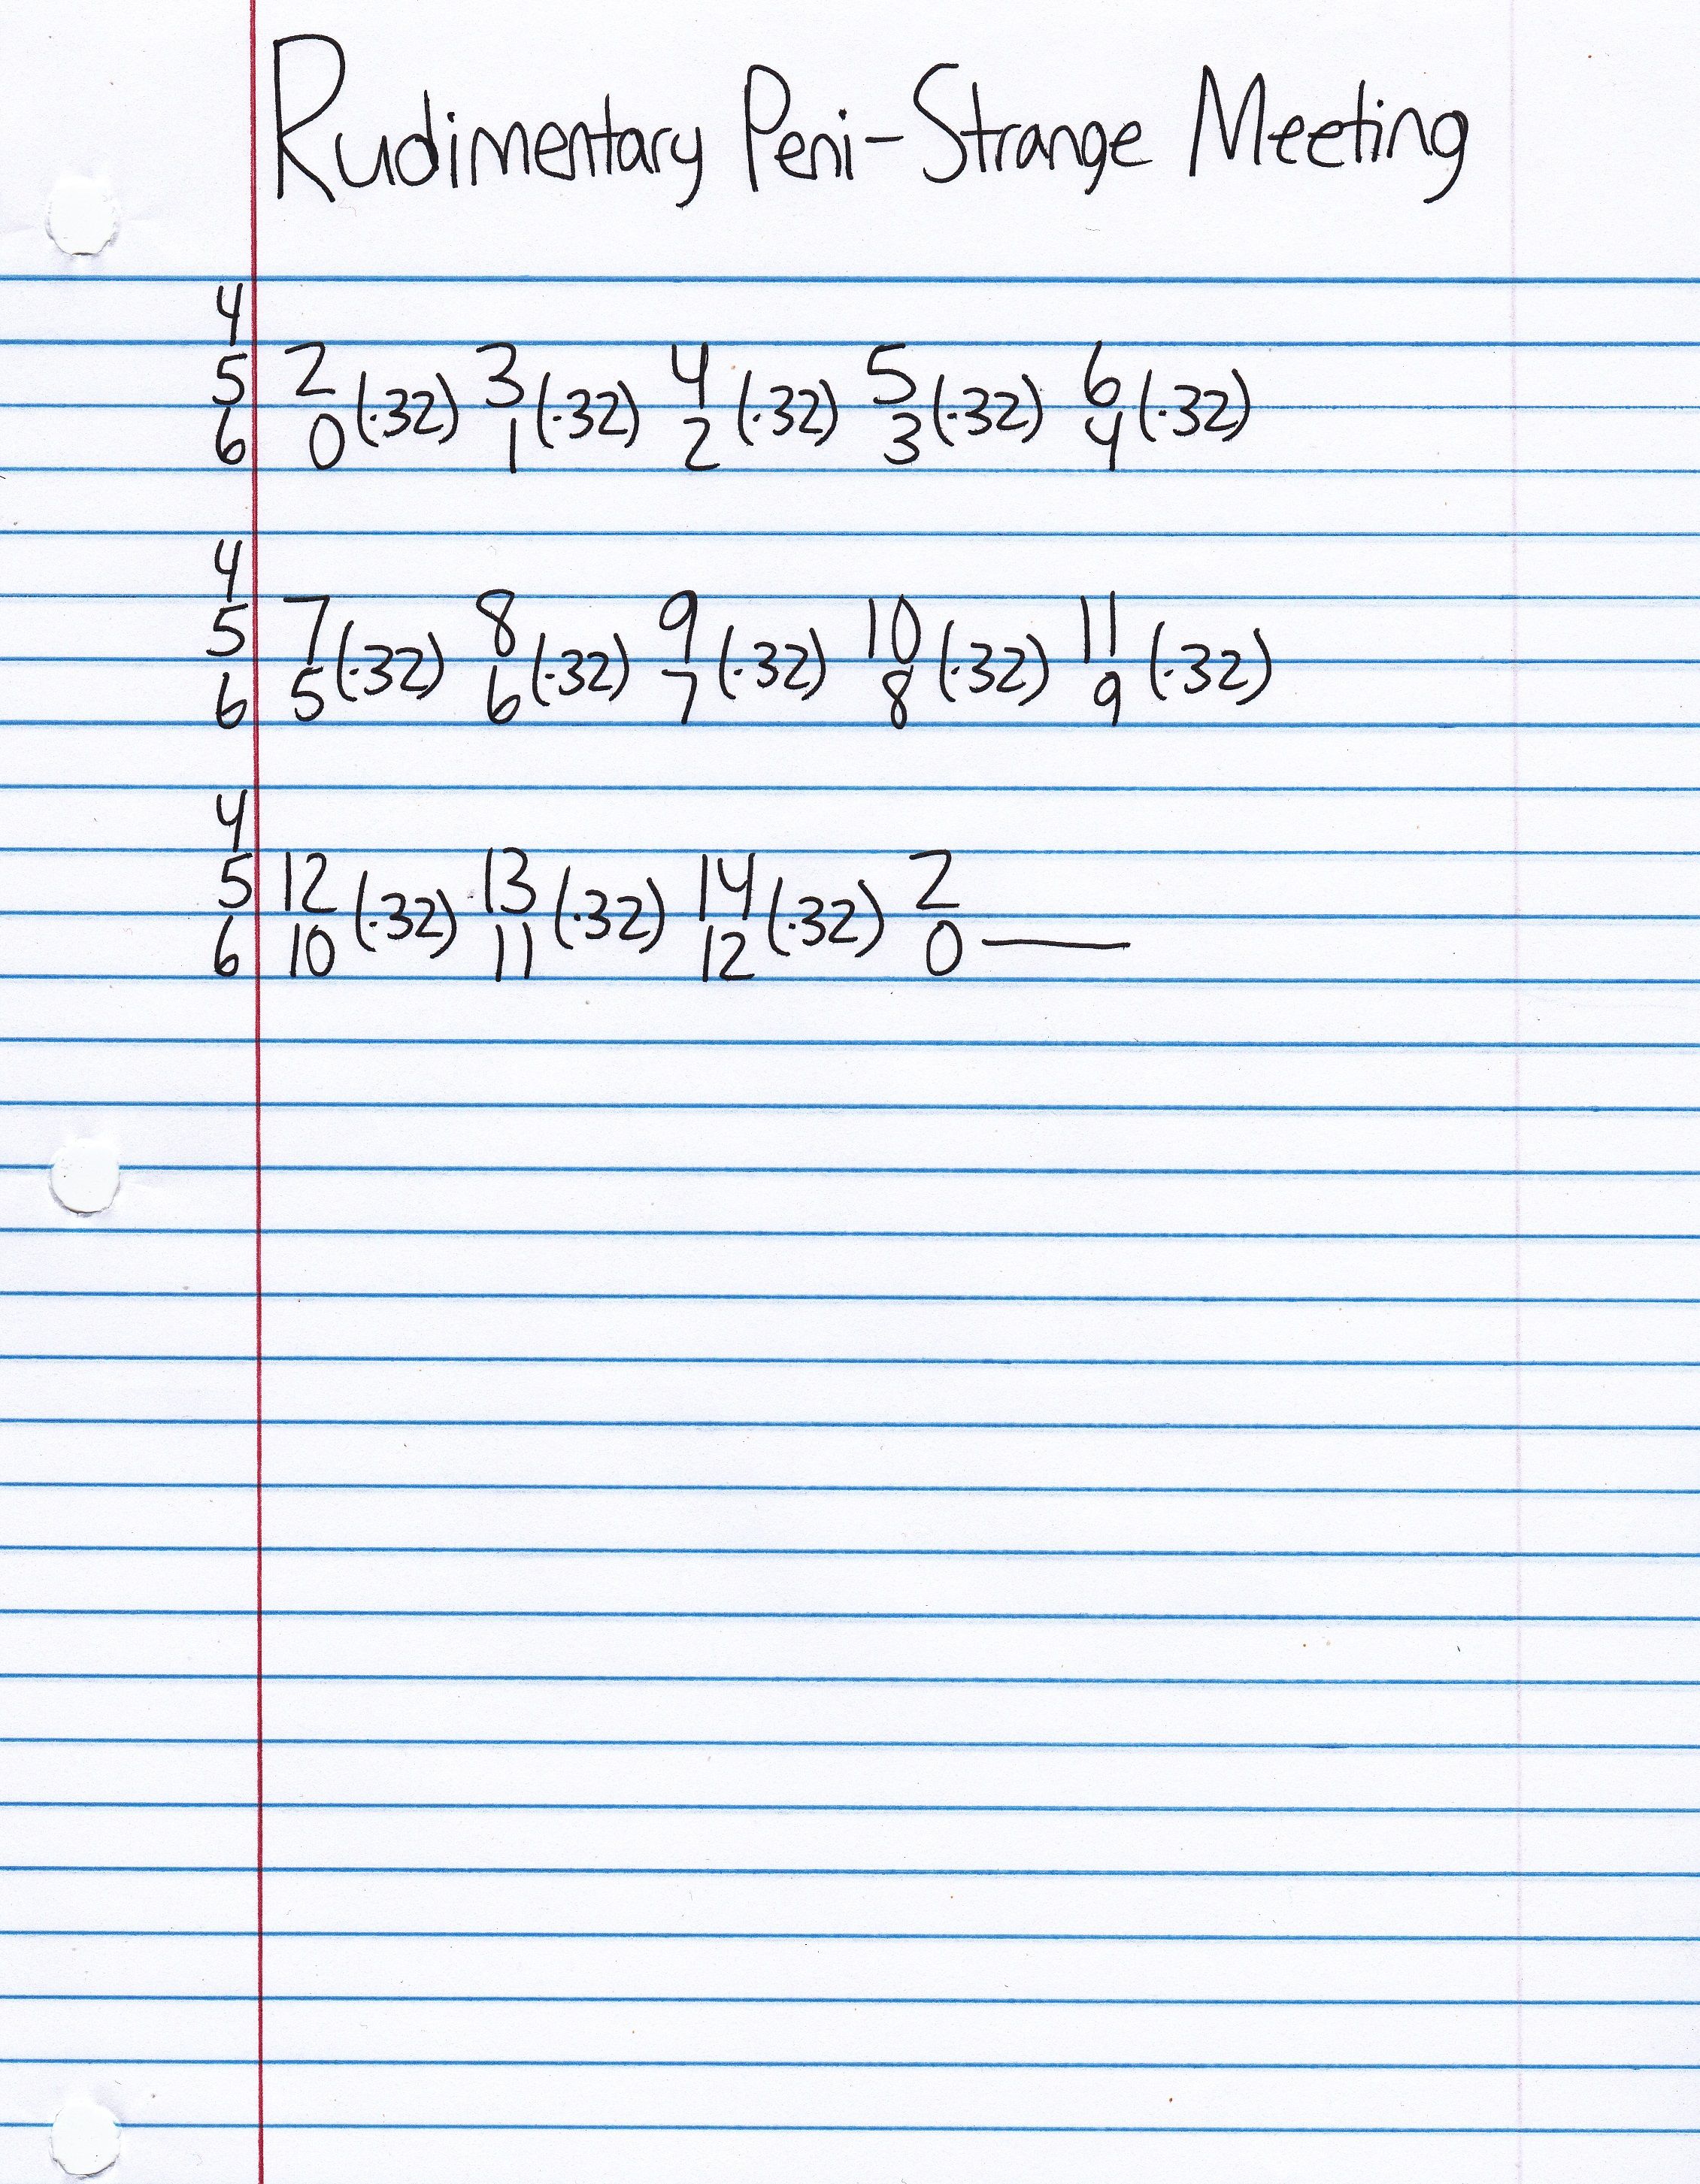 Rudimentary Peni-Strange Meeting
4
5 2 3 4 5 6
(.32) (.32) (.32) (.32) (.32)
6 0 1 2 3 4
4
5 7 8 9 10 11
(.32) (.32) (.32) (.32) (.32)
6 5 6 7 8 9
4
5 12 13 14 2
(.32) (.32) (.32)
6 10 11 12 0 —